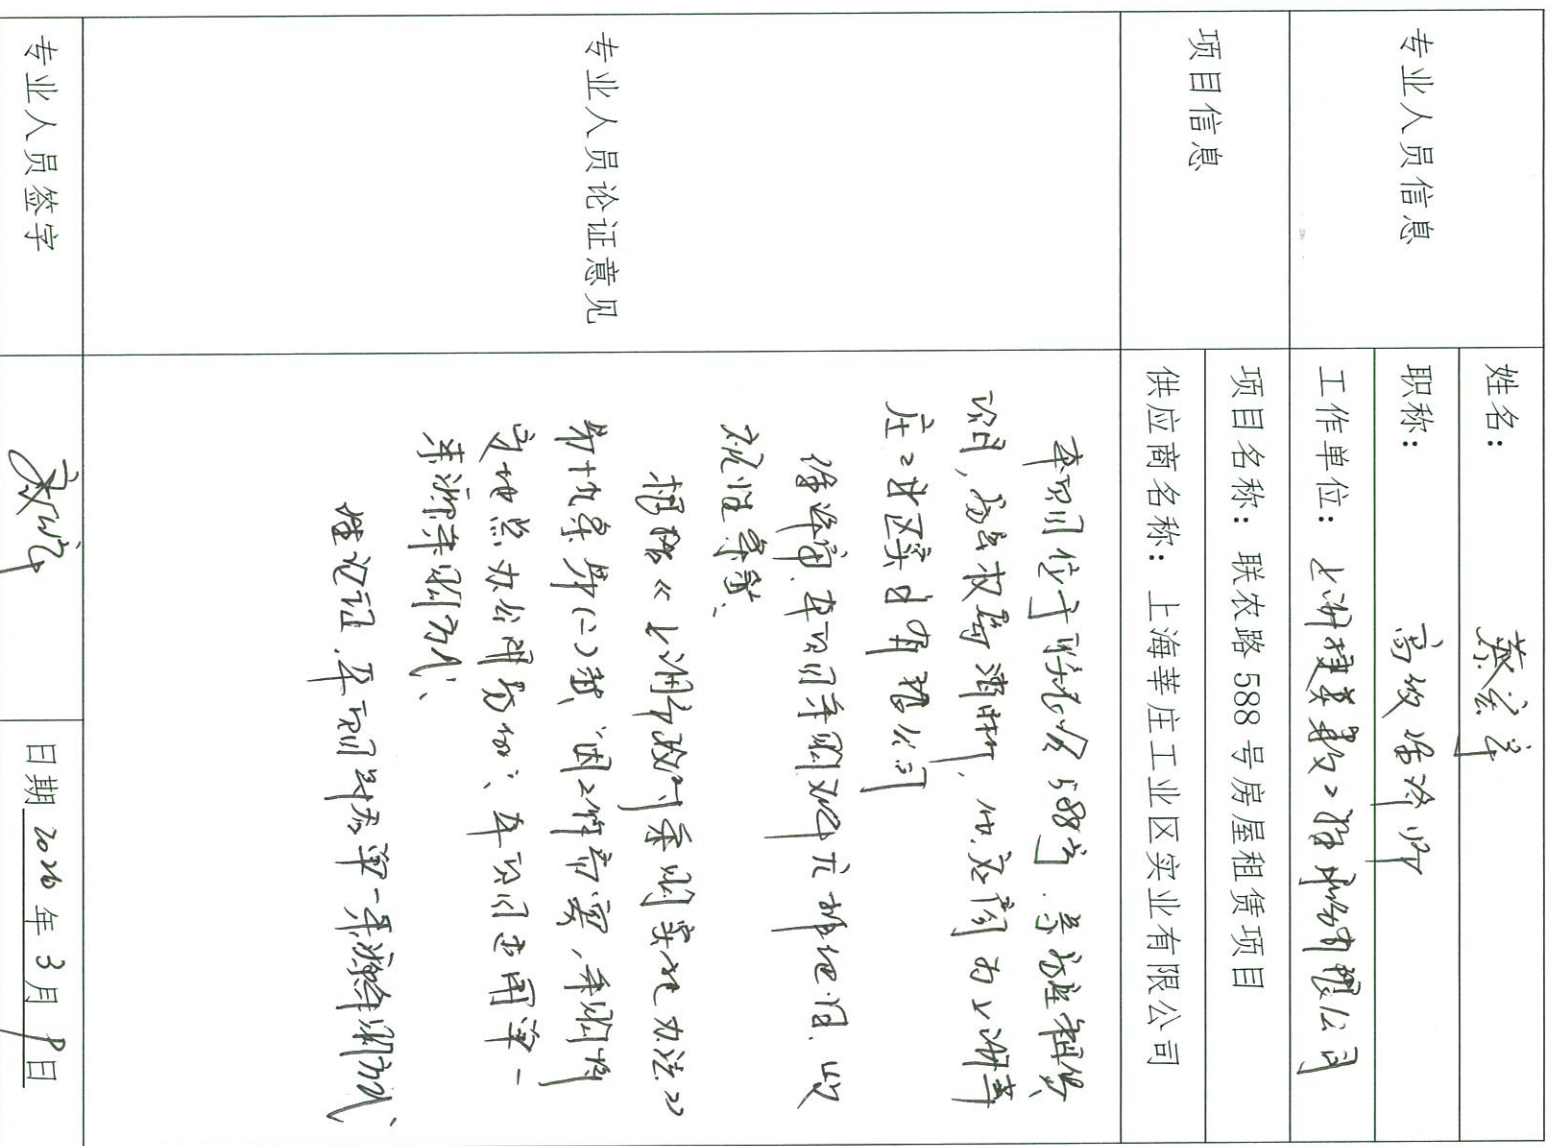 专业人员信息
姓名：蔡宏军
职称：高级经济师
工作单位：上海 有限公司
项目信息
项目名称：联农路588号房屋租赁项目
供应商名称：上海莘庄工业区实业有限公司
专业人员论证意见
本项目位于联农路588号，系房屋租赁
项目，房屋权属清晰， 为上海莘
庄工业区实业有限公司
经评审，本项目采购 排他性，
竞争
根据《上海市政府采购实施办法》
第十九条第(二)款，"因 需要，采购
定地点办公用房的"，本项目适用单一
来源采购方式、
经论证，本项目 单一来源采购方式
专业人员签字
日期 2026年3月9日